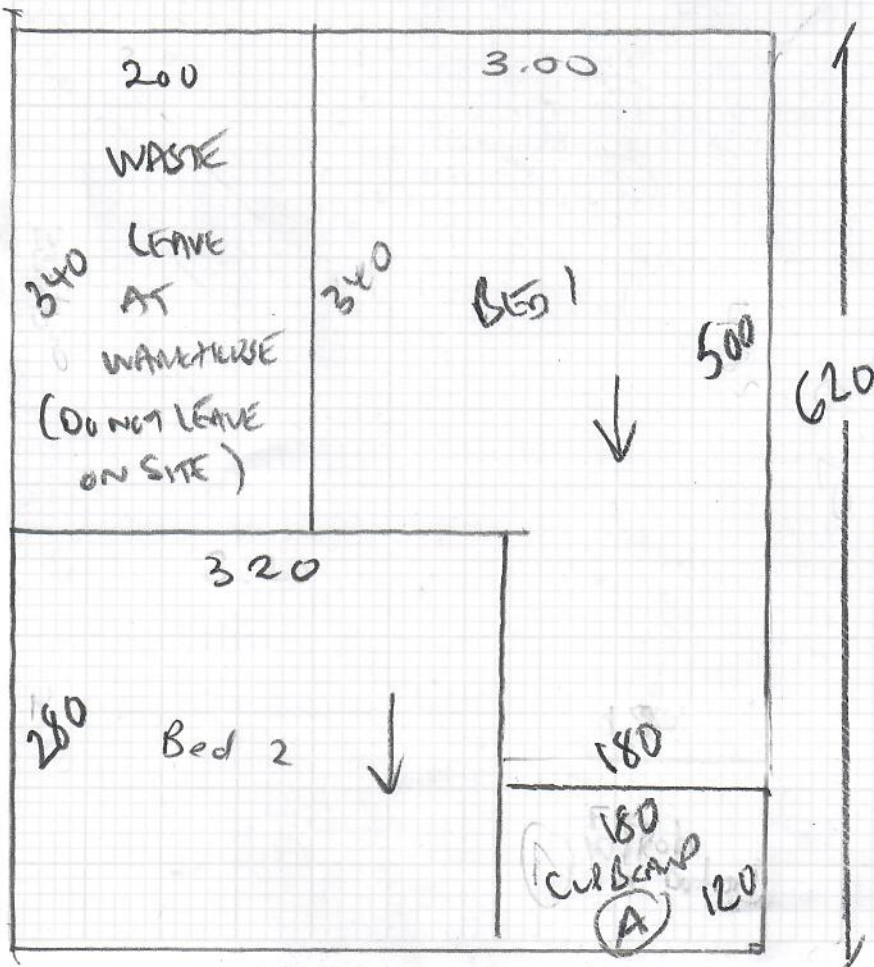 200
WASTE
LEAVE
AT
WAREHOUSE
(DO NOT LEAVE
ON SITE)
340
3.00
340
BED 1
500
620
320
280
Bed 2
180
180
CUPBOARD
A
120